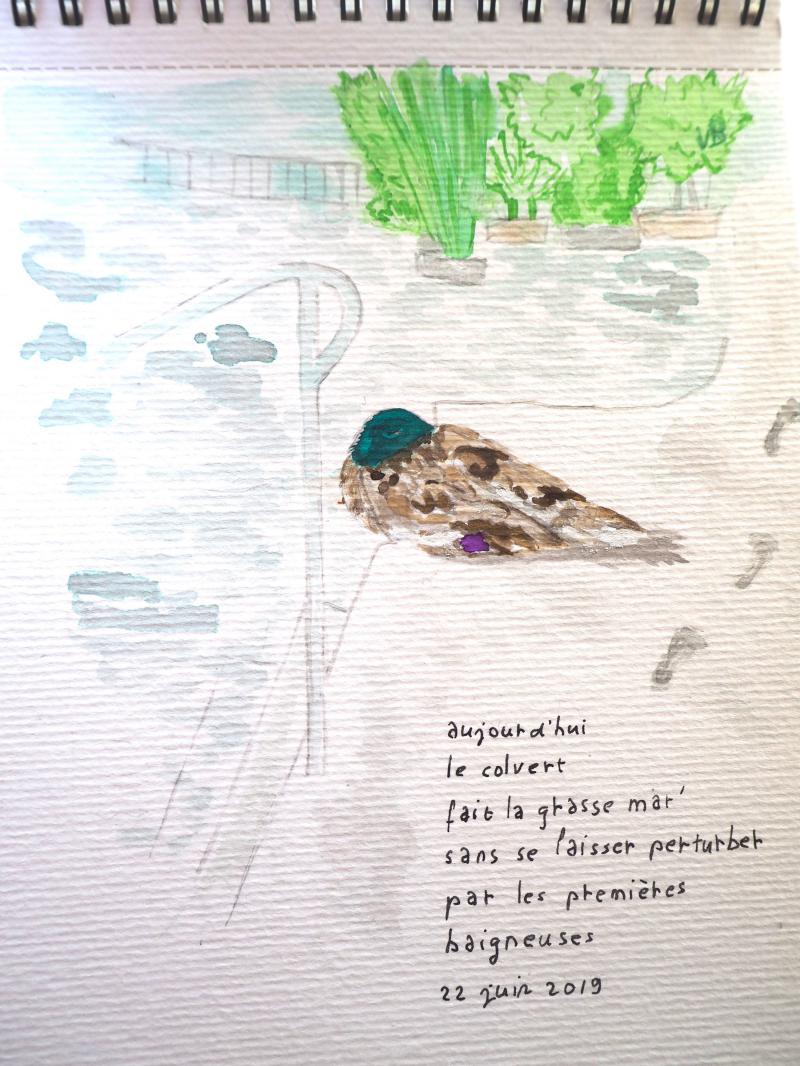 VB
aujourd'hui
le colvert
fait la grasse mat'
sans se laisser perturber
par les premières
baigneuses
22 juin 2019